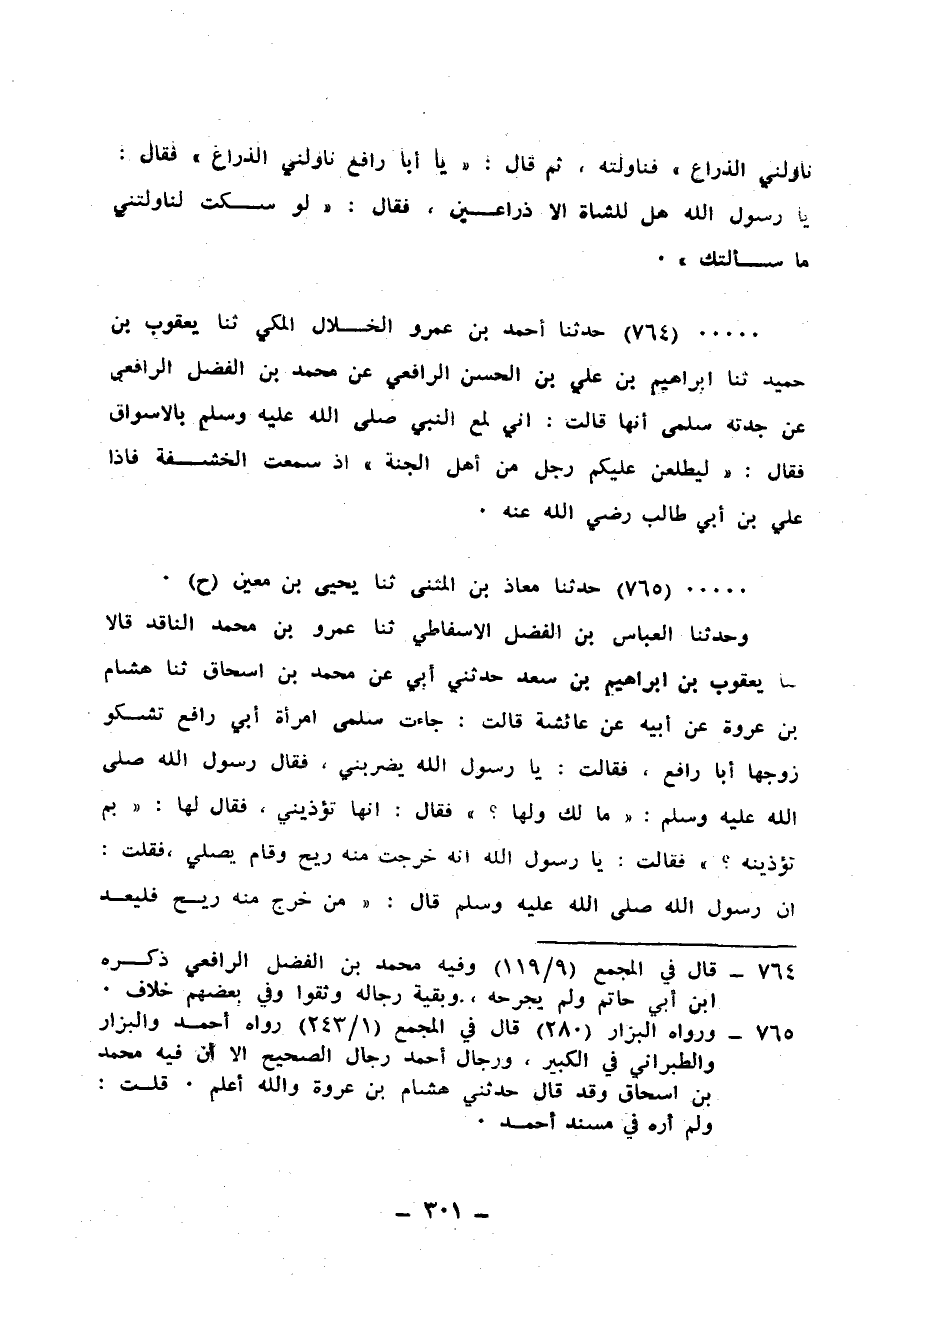 ناولني الذراع » فناولته ، ثم قال : « يا أبا رافع ناولني الذراع » فقال :
يا رسول الله هل للشاة الا ذراعين ، فقال : « لو سكت لناولتني
ما سألتك » ٠
٠٠٠٠٠ (٧٦٤) حدثنا أحمد بن عمرو الخلال المكي ثنا يعقوب بن
حميد ثنا ابراهيم بن علي بن الحسن الرافعي عن محمد بن الفضل الرافعي
عن جدته سلمى أنها قالت : اني لمع النبي صلى الله عليه وسلم بالاسواق
فقال : « ليطلعن عليكم رجل من أهل الجنة » اذ سمعت الخشفة فاذا
علي بن أبي طالب رضي الله عنه ٠
٠٠٠٠٠ (٧٦٥) حدثنا معاذ بن المثنى ثنا يحيى بن معين (ح) ٠
وحدثنا العباس بن الفضل الاسفاطي ثنا عمرو بن محمد الناقد قالا
يعقوب بن ابراهيم بن سعد حدثني أبي عن محمد بن اسحاق ثنا هشام
بن عروة عن أبيه عن عائشة قالت : جاءت سلمى امرأة أبي رافع تشكو
زوجها أبا رافع ، فقالت : يا رسول الله يضربني ، فقال رسول الله صلى
الله عليه وسلم : « ما لك ولها ؟ » فقال : انها تؤذيني ، فقال لها : « بم
تؤذينه ؟ » فقالت : يا رسول الله انه خرجت منه ريح وقام يصلي ،فقلت :
ان رسول الله صلى الله عليه وسلم قال : « من خرج منه ريح فليعد
٧٦٤ ـ قال في المجمع (١١٩/٩) وفيه محمد بن الفضل الرافعي ذكره
ابن أبي حاتم ولم يجرحه ، وبقية رجاله وثقوا وفي بعضهم خلاف ٠
٧٦٥ ـ ورواه البزار (٢٨٠) قال في المجمع (٢٤٣/١) رواه أحمد والبزار
والطبراني في الكبير ، ورجال أحمد رجال الصحيح الا أن فيه محمد
بن اسحاق وقد قال حدثني هشام بن عروة والله أعلم ٠ قلت :
ولم أره في مسند أحمد ٠
ـ ٣٠١ ـ